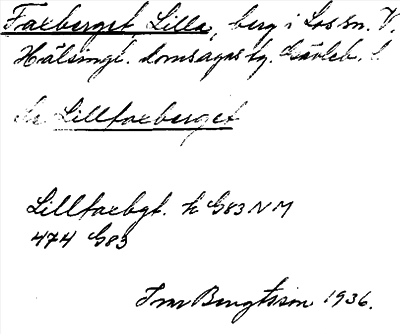 Faxberget Lilla, berg i Los sn. V.
Hälsingl. domsagas tg. Gävleb. l.
Se Lillfaxberget
Lillfaxbgt. k G83 NM
474 G83
Ivar Bengtsson 1936.